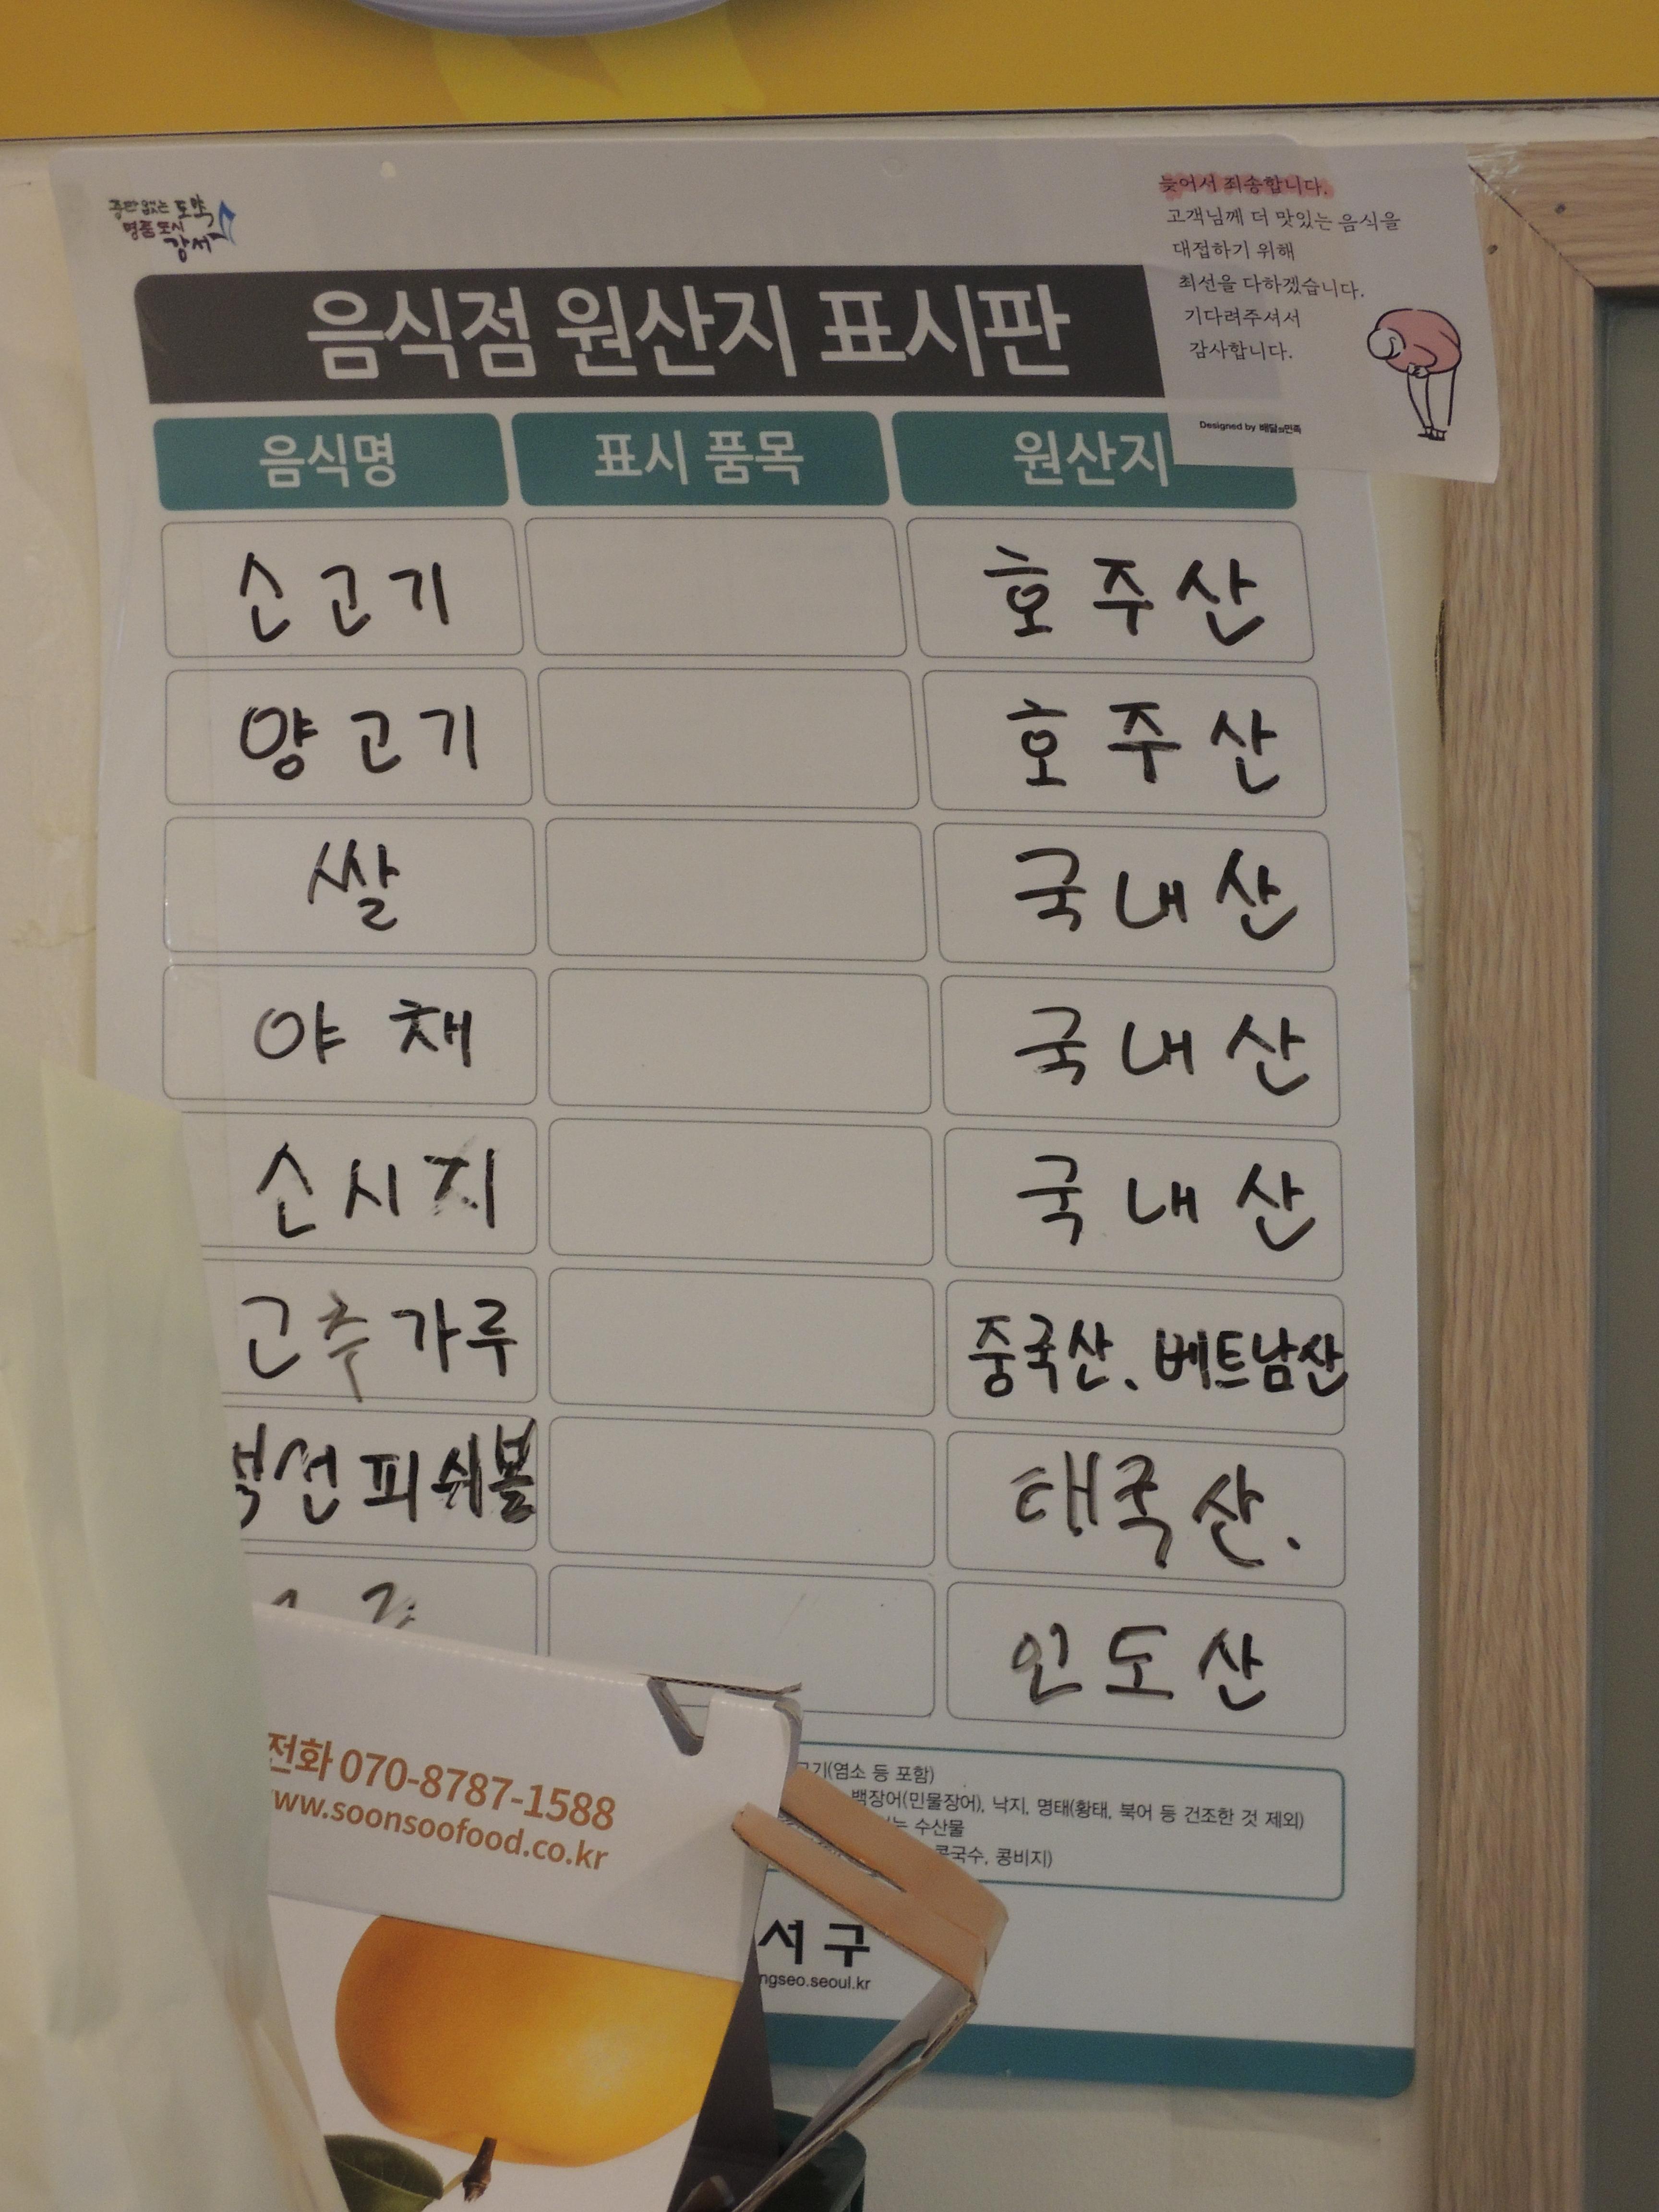 중단없는 도약
명품도시
강서
늦어서 죄송합니다.
고객님께 더 맛있는 음식을
대접하기 위해
최선을 다하겠습니다.
기다려주셔서
감사합니다.
Designed by 배달의민족
음식점 원산지 표시판
음식명 표시 품목 원산지
손고기 호주산
양고기 호주산
쌀 국내산
야채 국내산
손시지 국내산
고추가루 중국산. 베트남산
선피쉬볼 태국산.
인도산
전화 070-8787-1588
www.soonsoofood.co.kr
고기(염소 등 포함)
백장어(민물장어), 낙지, 명태(황태, 북어 등 건조한 것 제외)
는 수산물
콩국수, 콩비지)
서구
ngseo.seoul.kr